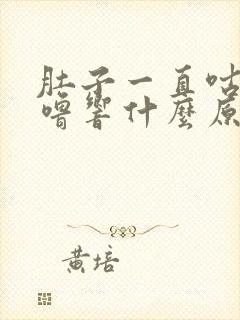 肚子一直咕
嚕響什麼原
黃培